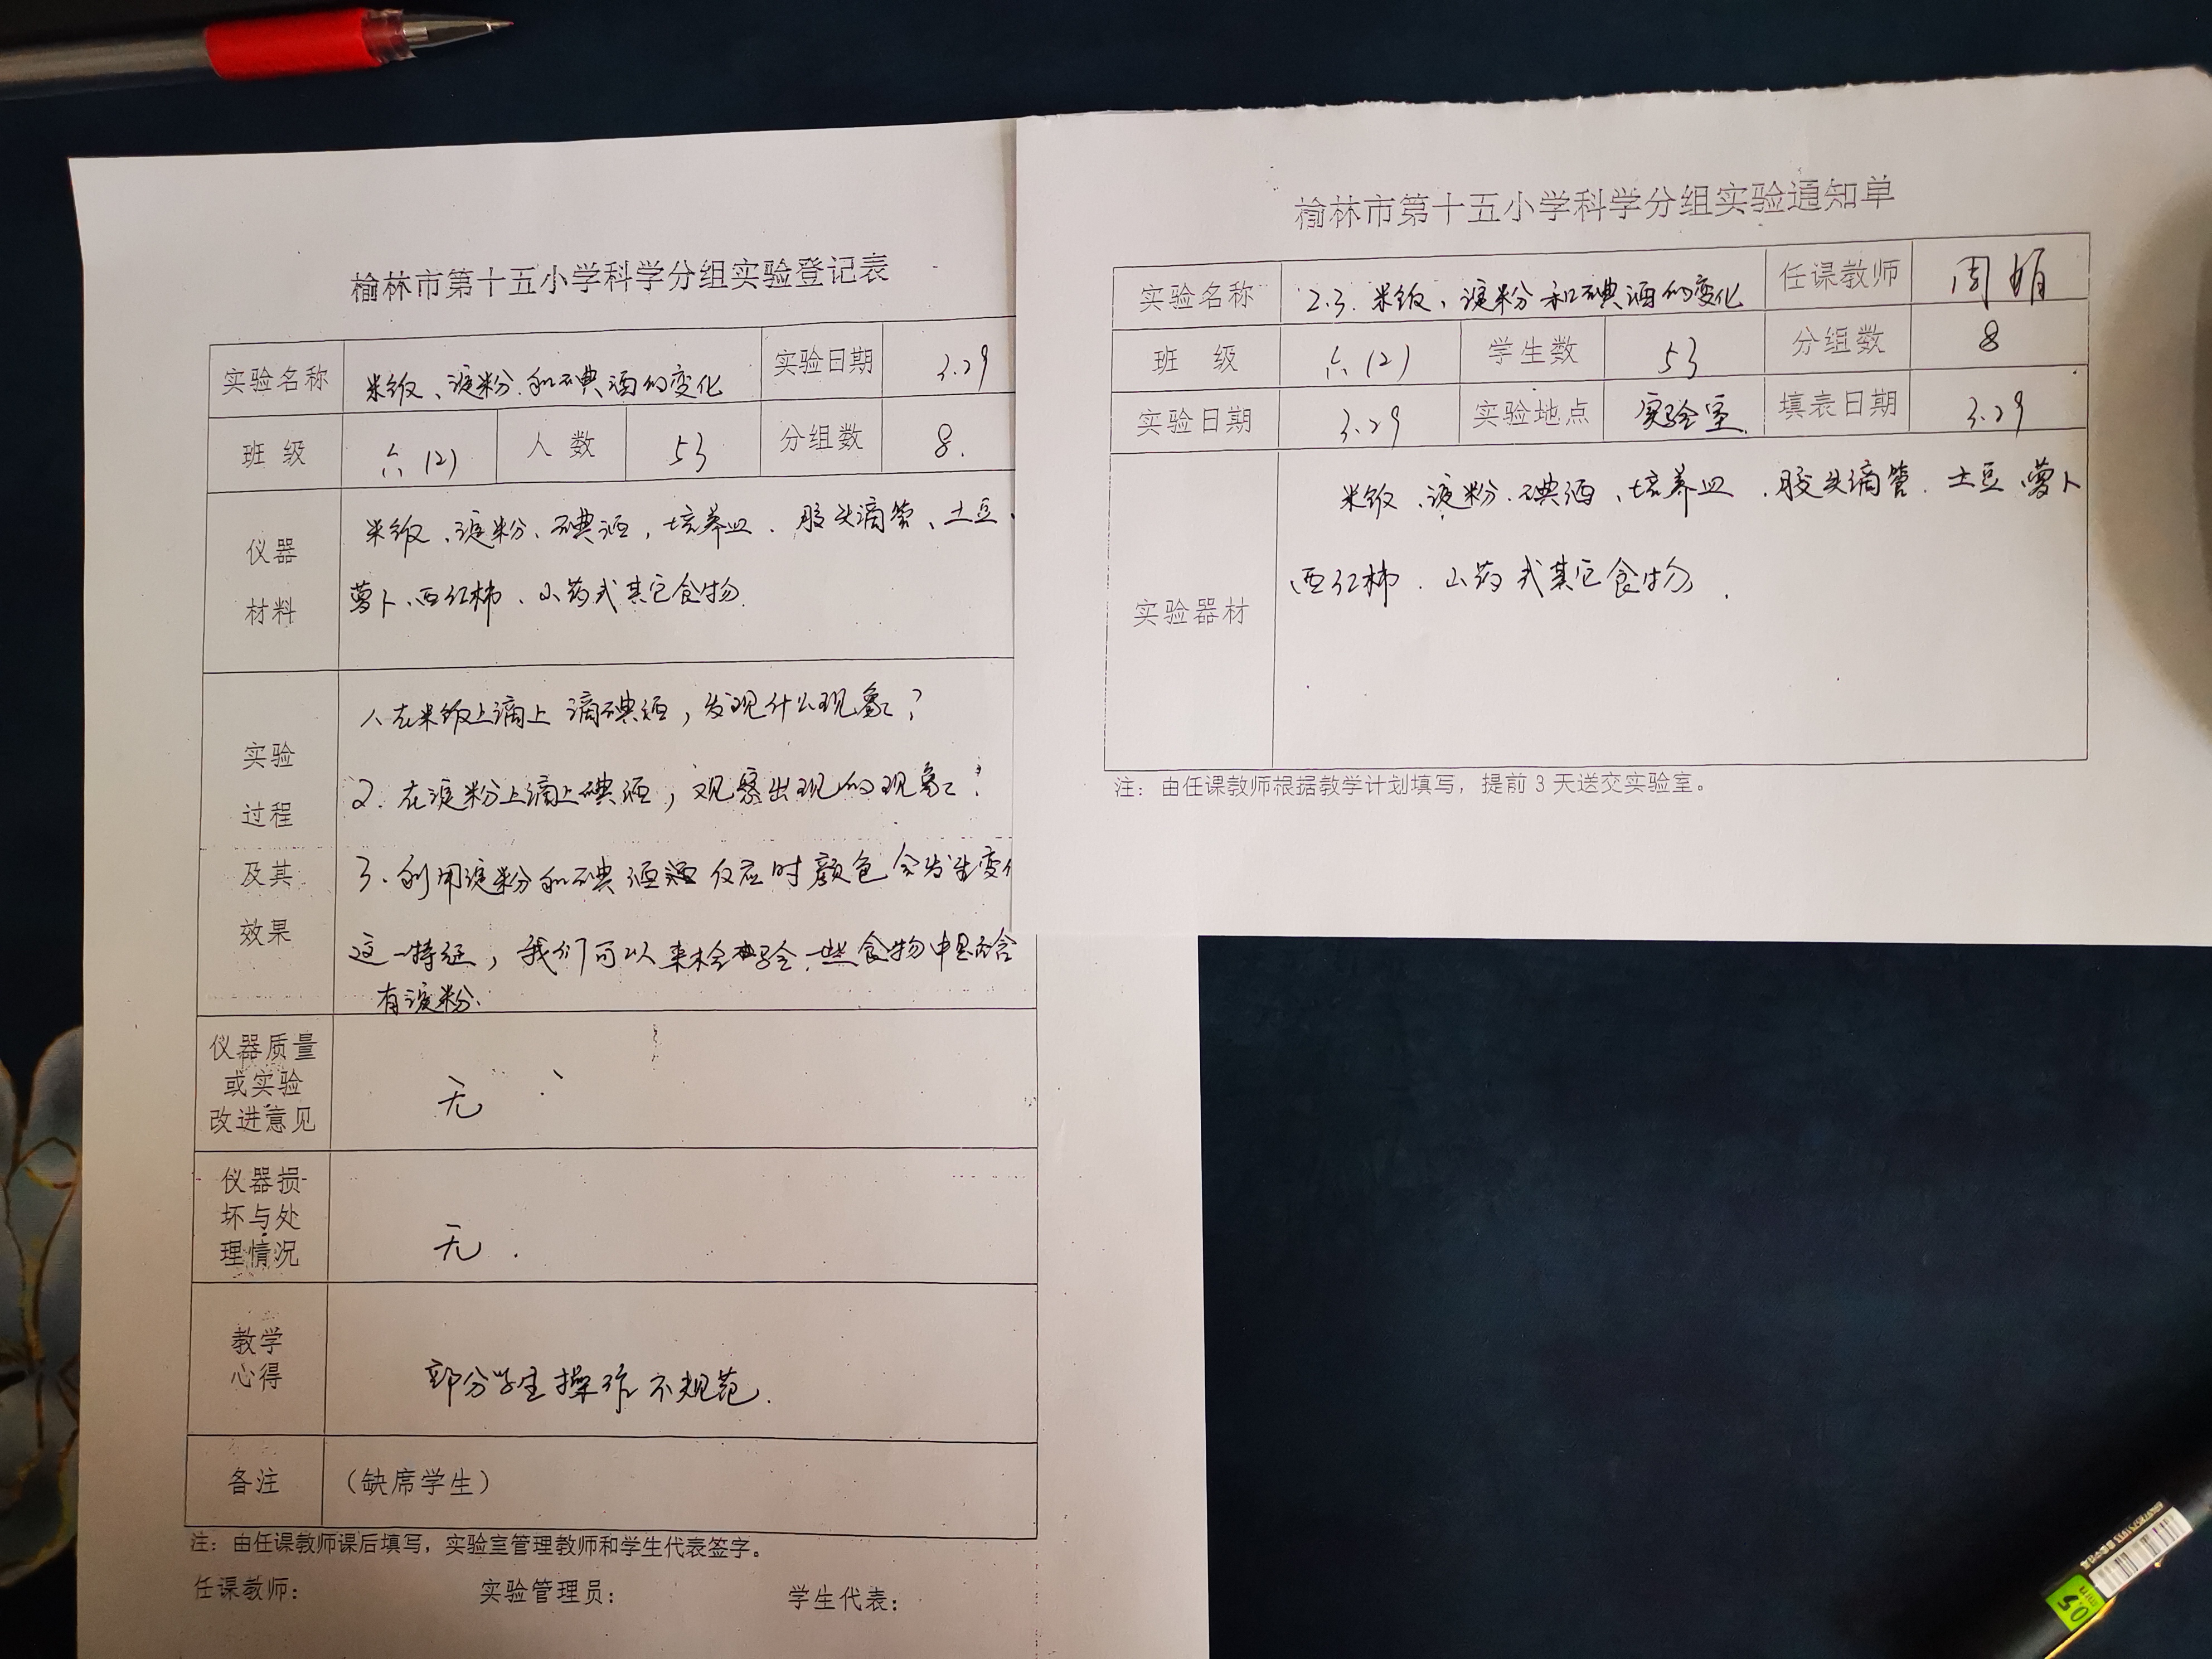 榆林市第十五小学科学分组实验登记表
实验名称 米饭、淀粉和碘酒的变化 实验日期 3.29
班 级 六(2) 人 数 53 分组数 8.
仪器 米饭、淀粉、碘酒，培养皿．胶头滴管、土豆、
材料 萝卜、西红柿、山药或其它食物.
实验 1.在米饭上滴上 滴碘酒，发现什么现象？
过程 2.在淀粉上滴上碘酒，观察出现的现象？
及其 3.利用淀粉和碘酒 反应时颜色会发生变
效果 这一特征，我们可以来检验一些食物中是否含
有淀粉.
仪器质量
或实验
改进意见 无
仪器损
坏与处
理情况 无.
教学
心得 部分学生操作不规范.
各注 （缺席学生）
注：由任课教师课后填写，实验室管理教师和学生代表签字。
任课教师： 实验管理员： 学生代表：
榆林市第十五小学科学分组实验通知单
实验名称 2.3.米饭、淀粉和碘酒的变化 任课教师 周娟
班 级 六(2) 学生数 53 分组数 8
实验日期 3.29 实验地点 实验室. 填表日期 3.29
米饭、淀粉.碘酒、培养皿．胶头滴管．土豆、萝卜
西红柿．山药或其它食物．
实验器材
注：由任课教师根据教学计划填写，提前 3 天送交实验室。
0.5
mm